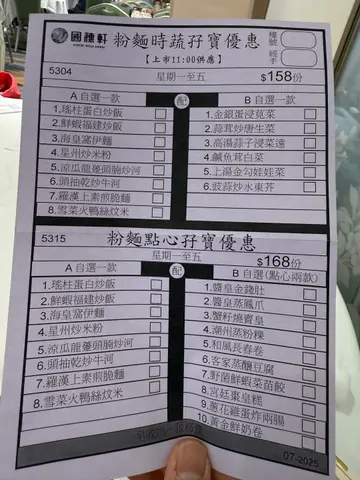 國穗軒
粉麵時蔬孖寶優惠
檯號
經手
【上市11:00供應】
5304
星期一至五
$158份
A 自選一款
配
B 自選一款
1.瑤柱蛋白炒飯
2.鮮蝦福建炒飯
3.海皇窩伊麵
4.星州炒米粉
5.涼瓜龍躉頭腩炒河
6.頭抽乾炒牛河
7.羅漢上素煎脆麵
8.雪菜火鴨絲炆米
1.金銀蛋浸莧菜
2.蒜茸炒唐生菜
3.高湯蒜子浸菜遠
4.鹹魚茸白菜
5.上湯金勾娃娃菜
6.豉蒜炒水東芥
5315
粉麵點心孖寶優惠
星期一至五
$168份
A 自選一款
配
B 自選(點心兩款)
1.瑤柱蛋白炒飯
2.鮮蝦福建炒飯
3.海皇窩伊麵
4.星州炒米粉
5.涼瓜龍躉頭腩炒河
6.頭抽乾炒牛河
7.羅漢上素煎脆麵
8.雪菜火鴨絲炆米
1.醬皇金錢肚
2.醬皇蒸鳳爪
3.蟹籽燒賣皇
4.潮州蒸粉粿
5.和風長春卷
6.客家蒸釀豆腐
7.野菌鮮蝦菜苗餃
8.宮廷棗皇糕
9.蔥花雞蛋炸兩腸
10.黃金鮮奶卷
07-2025